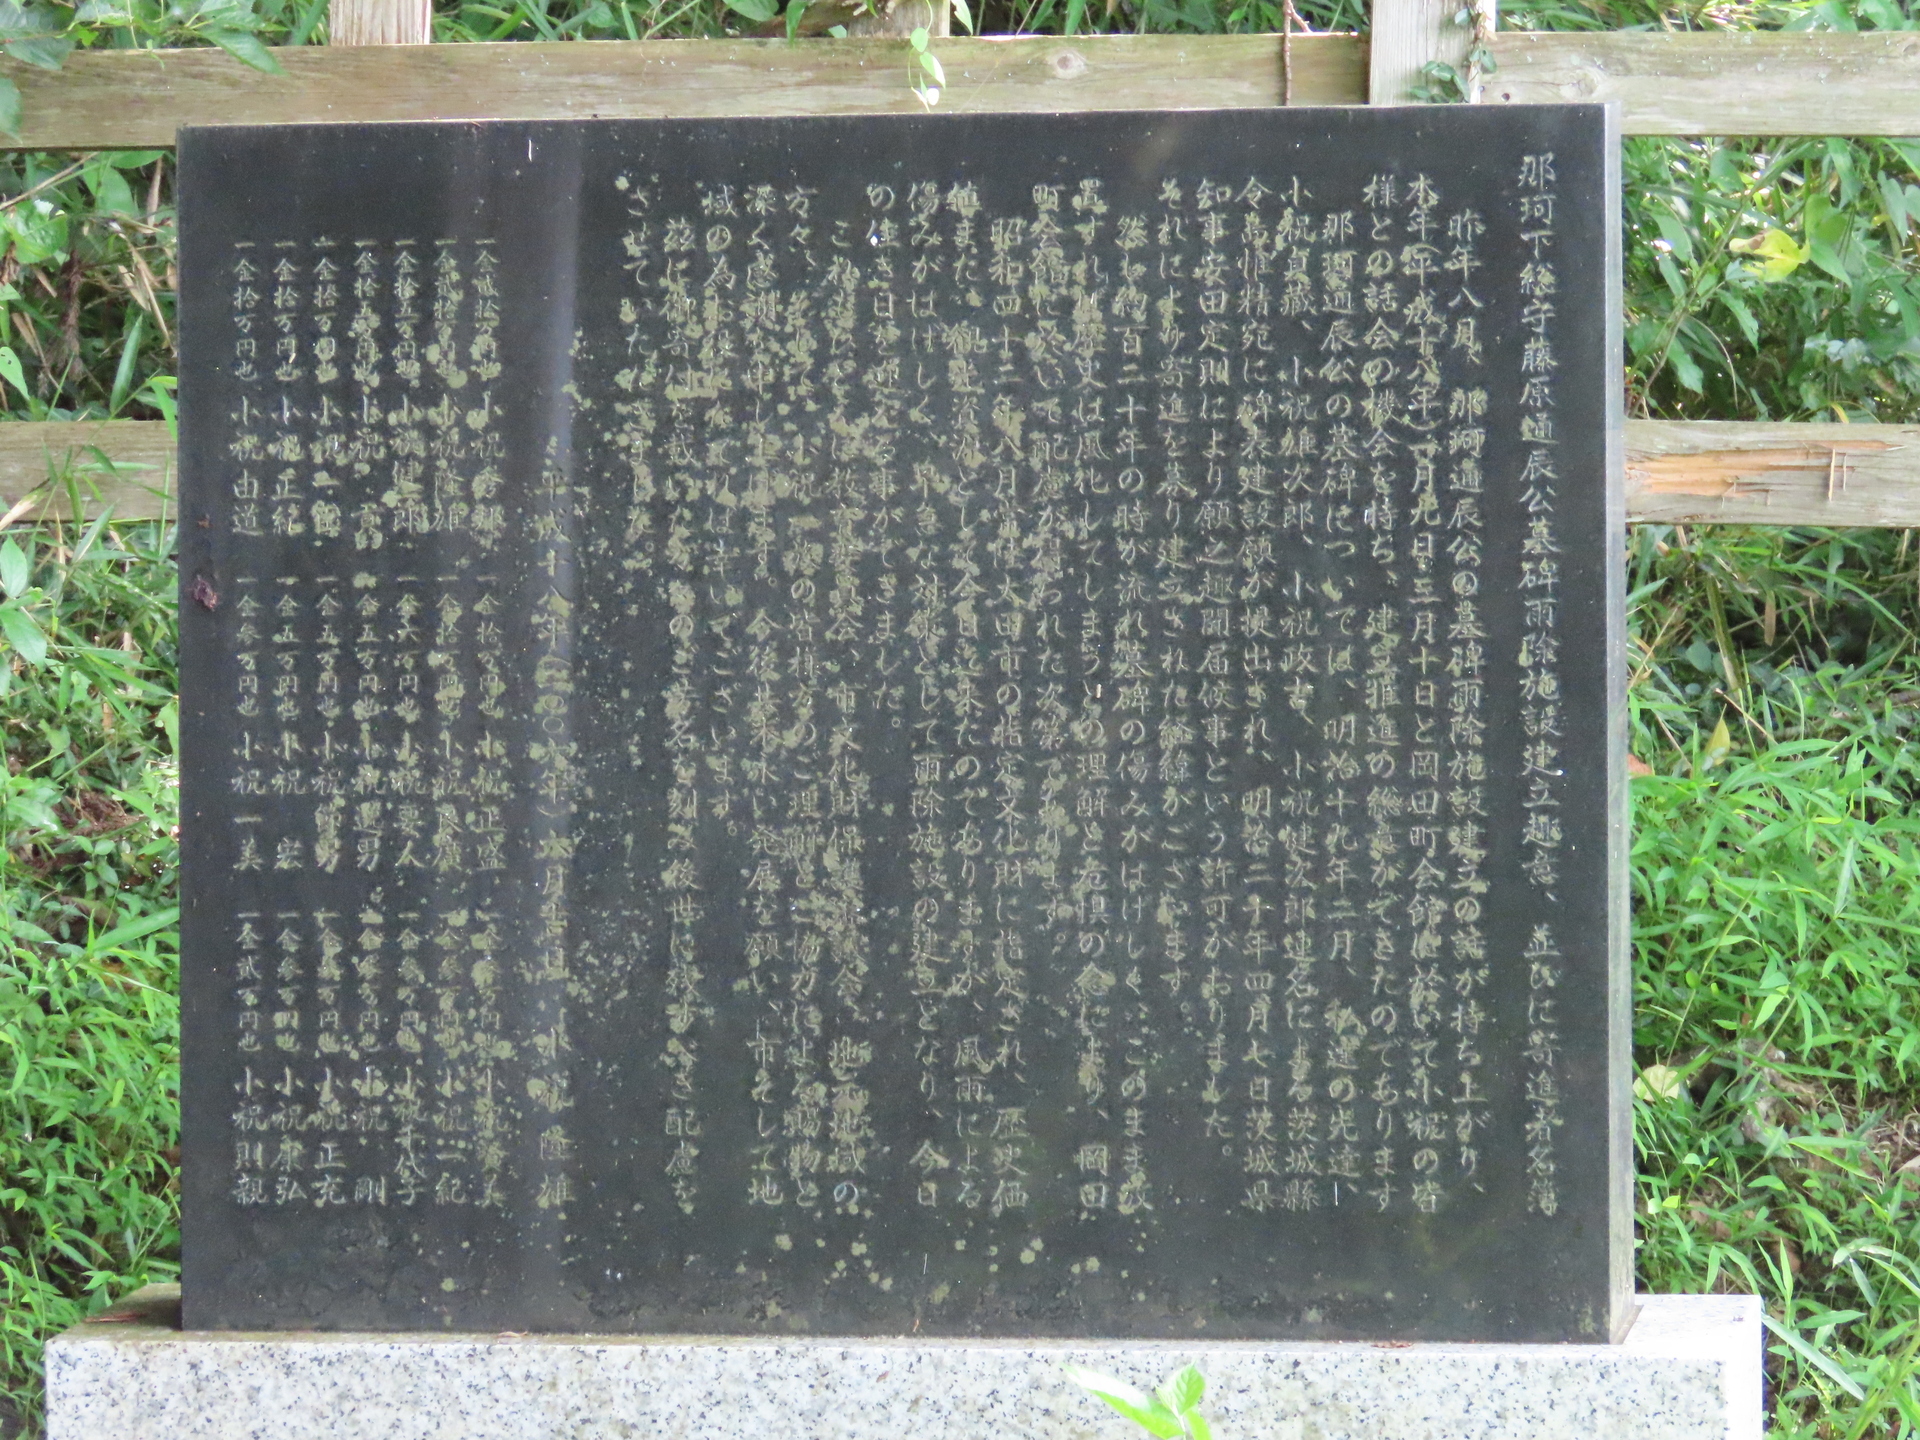 那珂下総守藤原通辰公墓碑雨除施設建立趣意、並びに寄進者名簿
昨年八月、那珂通辰公の墓碑雨除施設建立の話が持ち上がり、
本年(平成十八年)一月九日・三月十日と岡田町会館に於いて小祝の皆
様との話会の機会を持ち、建立推進の総意ができたのであります
那珂通辰公の墓碑については、明治十九年二月、私達の先達、
小祝貞蔵、小祝雄次郎、小祝政吉、小祝健次郎連名による茨城縣
令島惟精宛に碑表建設願が提出され、明治二十年四月七日茨城県
知事安田定則により願之趣聞届候事という許可がおりました。
それにより寄進を募り建立された経緯がございます。
然し約百二十年の時が流れ墓碑の傷みがはげしく、このまま放
置すれば歴史は風化してしまうとの理解と危惧の念により、岡田
町会館に於いて配慮が行われた次第であります。
昭和四十二年八月常陸太田市の指定文化財に指定され、歴史価
値また、観光資源として今日迄来たのでありますが、風雨による
傷みがはげしく、早急な対策として雨除施設の建立となり、今日
の佳き日を迎える事ができました。
これもひとえに市教育委員会、市文化財保護審議会、地元地域の
方々、そして、小祝一族の皆様方のご理解とご協力による賜物と
深く感謝申し上げます。今後共末永い発展を願い、市そして地
域の為お役に立てれば幸いでございます。
茲に御寄付を戴いた方々のご芳名を刻み後世に残すべき配慮を
させていただきました。
平成十八年(二〇〇六年)六月吉日 小祝隆雄
一金貳拾万円也 小祝 一金拾万円也 小祝正盛 一金参万円也 小祝
一金貳拾万円也 小祝隆雄 一金拾万円也 小祝廣 一金参万円也 小祝二紀
一金拾五万円也 小祝健二郎 一金六万円也 小祝要人 一金参万円也 小祝千代子
一金拾万円也 小祝 一金五万円也 小祝男 一金参万円也 小祝 剛
一金拾万円也 小祝一 一金五万円也 小祝 一金参万円也 小祝正充
一金拾万円也 小祝正紀 一金五万円也 小祝 宏 一金参万円也 小祝康弘
一金拾万円也 小祝由道 一金参万円也 小祝一美 一金貳万円也 小祝則親